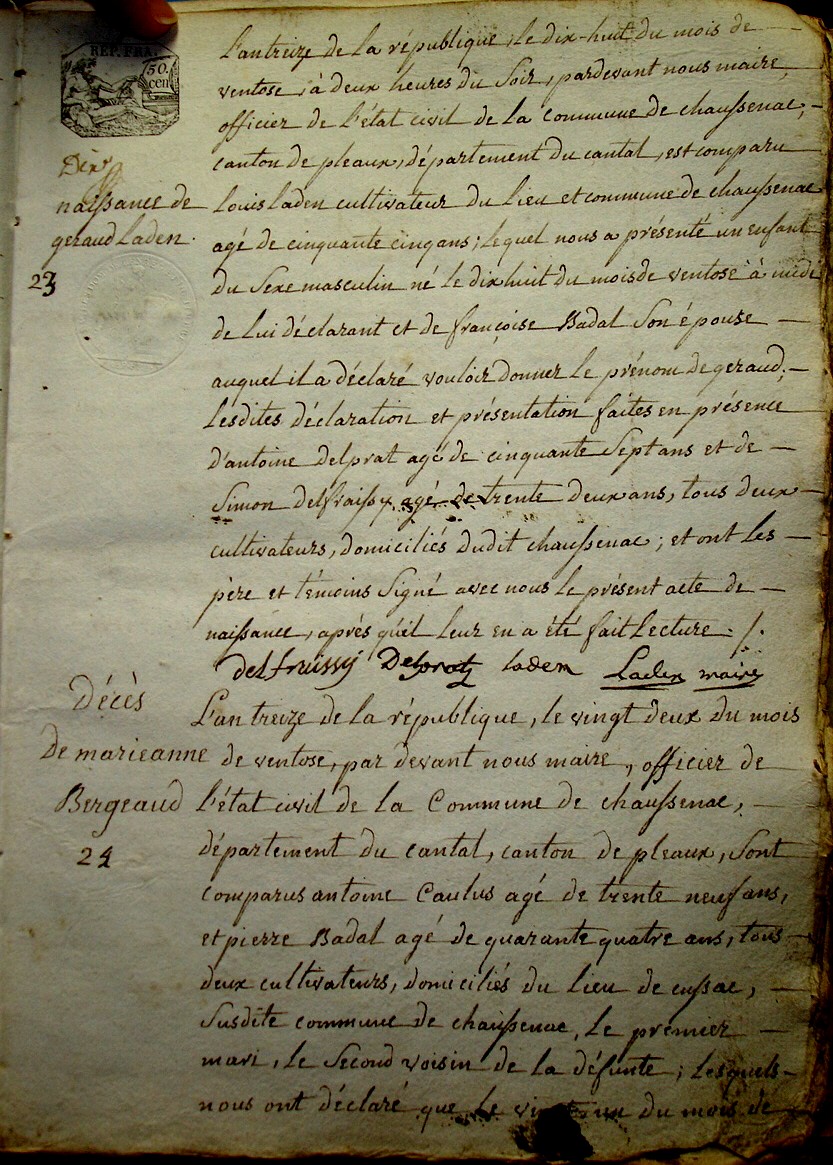 REP. FRA.
50.
cen
L'an treize de la république, le dix-huit du mois de
ventose, à deux heures du Soir, pardevant nous maire,
officier de l'état civil de la commune de chaussenac,
canton de pleaux, département du cantal, est comparu
Louis Laden cultivateur du lieu et commune de chaussenac
agé de cinquante cinq ans; lequel nous a présenté un enfant
du Sexe masculin né le dix huit du mois de ventose à midi
de lui déclarant et de françoise Badal Son épouse
auquel il a déclaré vouloir donner le prénom de geraud;
Lesdites déclaration et présentation faites en présence
d'antoine delprat agé de cinquante Sept ans et de
Simon delfraissy agé de trente deux ans, tous deux
cultivateurs, domiciliés dudit chaussenac; et ont les
père et témoins Signé avec nous le présent acte de
naissance, après qu'il leur en a été fait Lecture ./.
delfraissy Delprat laden Laden maire
naissance de
geraud Laden.
23
Décès
de marieanne
Bergeaud
24
L'an treize de la république, le vingt deux du mois
de ventose, par devant nous maire, officier de
l'état civil de la Commune de chaussenac,
département du cantal, canton de pleaux, Sont
comparus antoine Caulus agé de trente neuf ans,
et pierre Badal agé de quarante quatre ans, tous
deux cultivateurs, domiciliés du lieu de cussac,
Susdite commune de chaussenac, le premier
mari, le Second voisin de la défunte; lesquels
nous ont déclaré que le vingt un du mois de